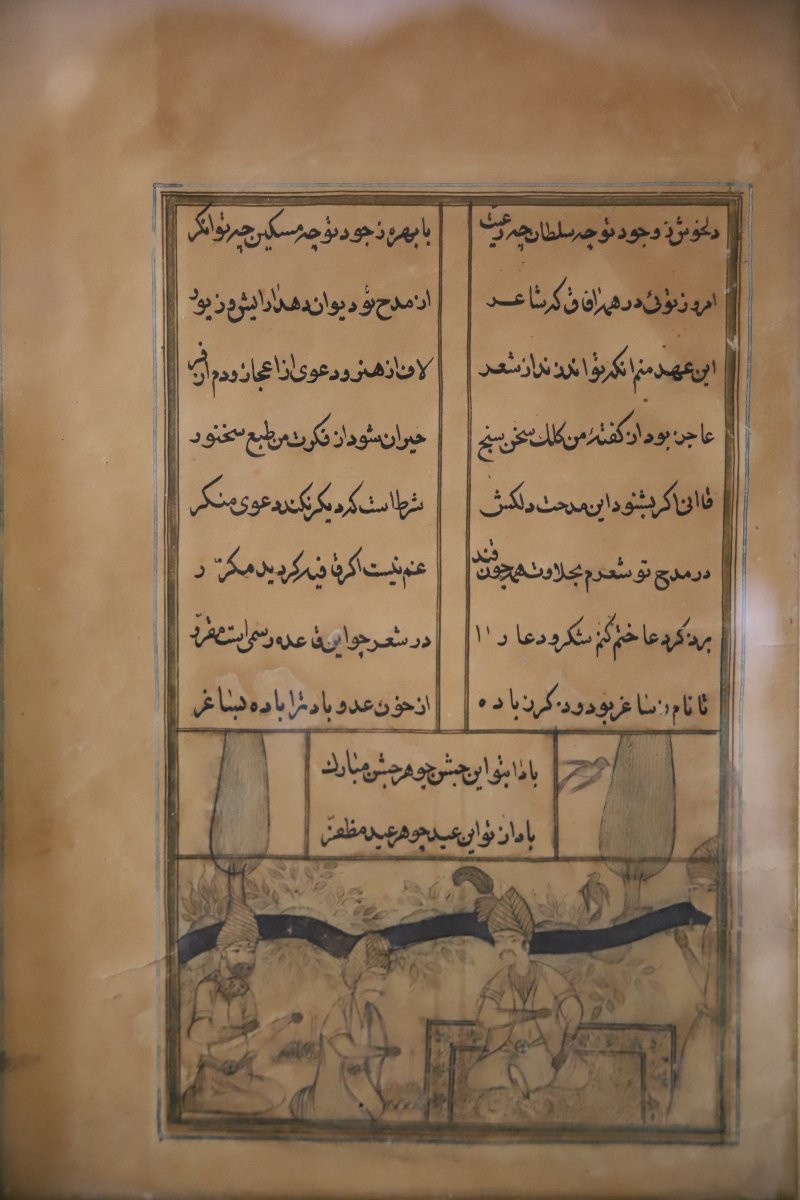 دلخوش ز وجود تو چه سلطان چه رعیّت با بهره ز جود تو چه مسکین چه توانکر
امروز توئی در همه آفاق که شاعر از مدح تو دیوان دهد آرایش و زیور
این عهد منم انکه تواند زند از شعر لاف از هنر و دعوی از اعجاز و دم از فر
عاجز بود از کفتهٔ من کلک سخن سنج حیران شود از فکرت من طبع سخنور
قاانی اکر بشنود این مدحت دلکش شرط است که دیکر نکند دعوی منکر
در مدح تو شعرم بحلاوت همه چون قند غم نیست اکر قافیه کردید مکرّر
برد کرد عا ختم کنم شکر و دعا را در شعر چو این قاعده رسمی است مقرّر
تا نام ز ساغر بود و ذکر ز باده از خون عدو باد ترا باده بساغر
بادا بتو این جشن چو هر جشن مبارک
باد از تو این عید چو هر عید مظفّر